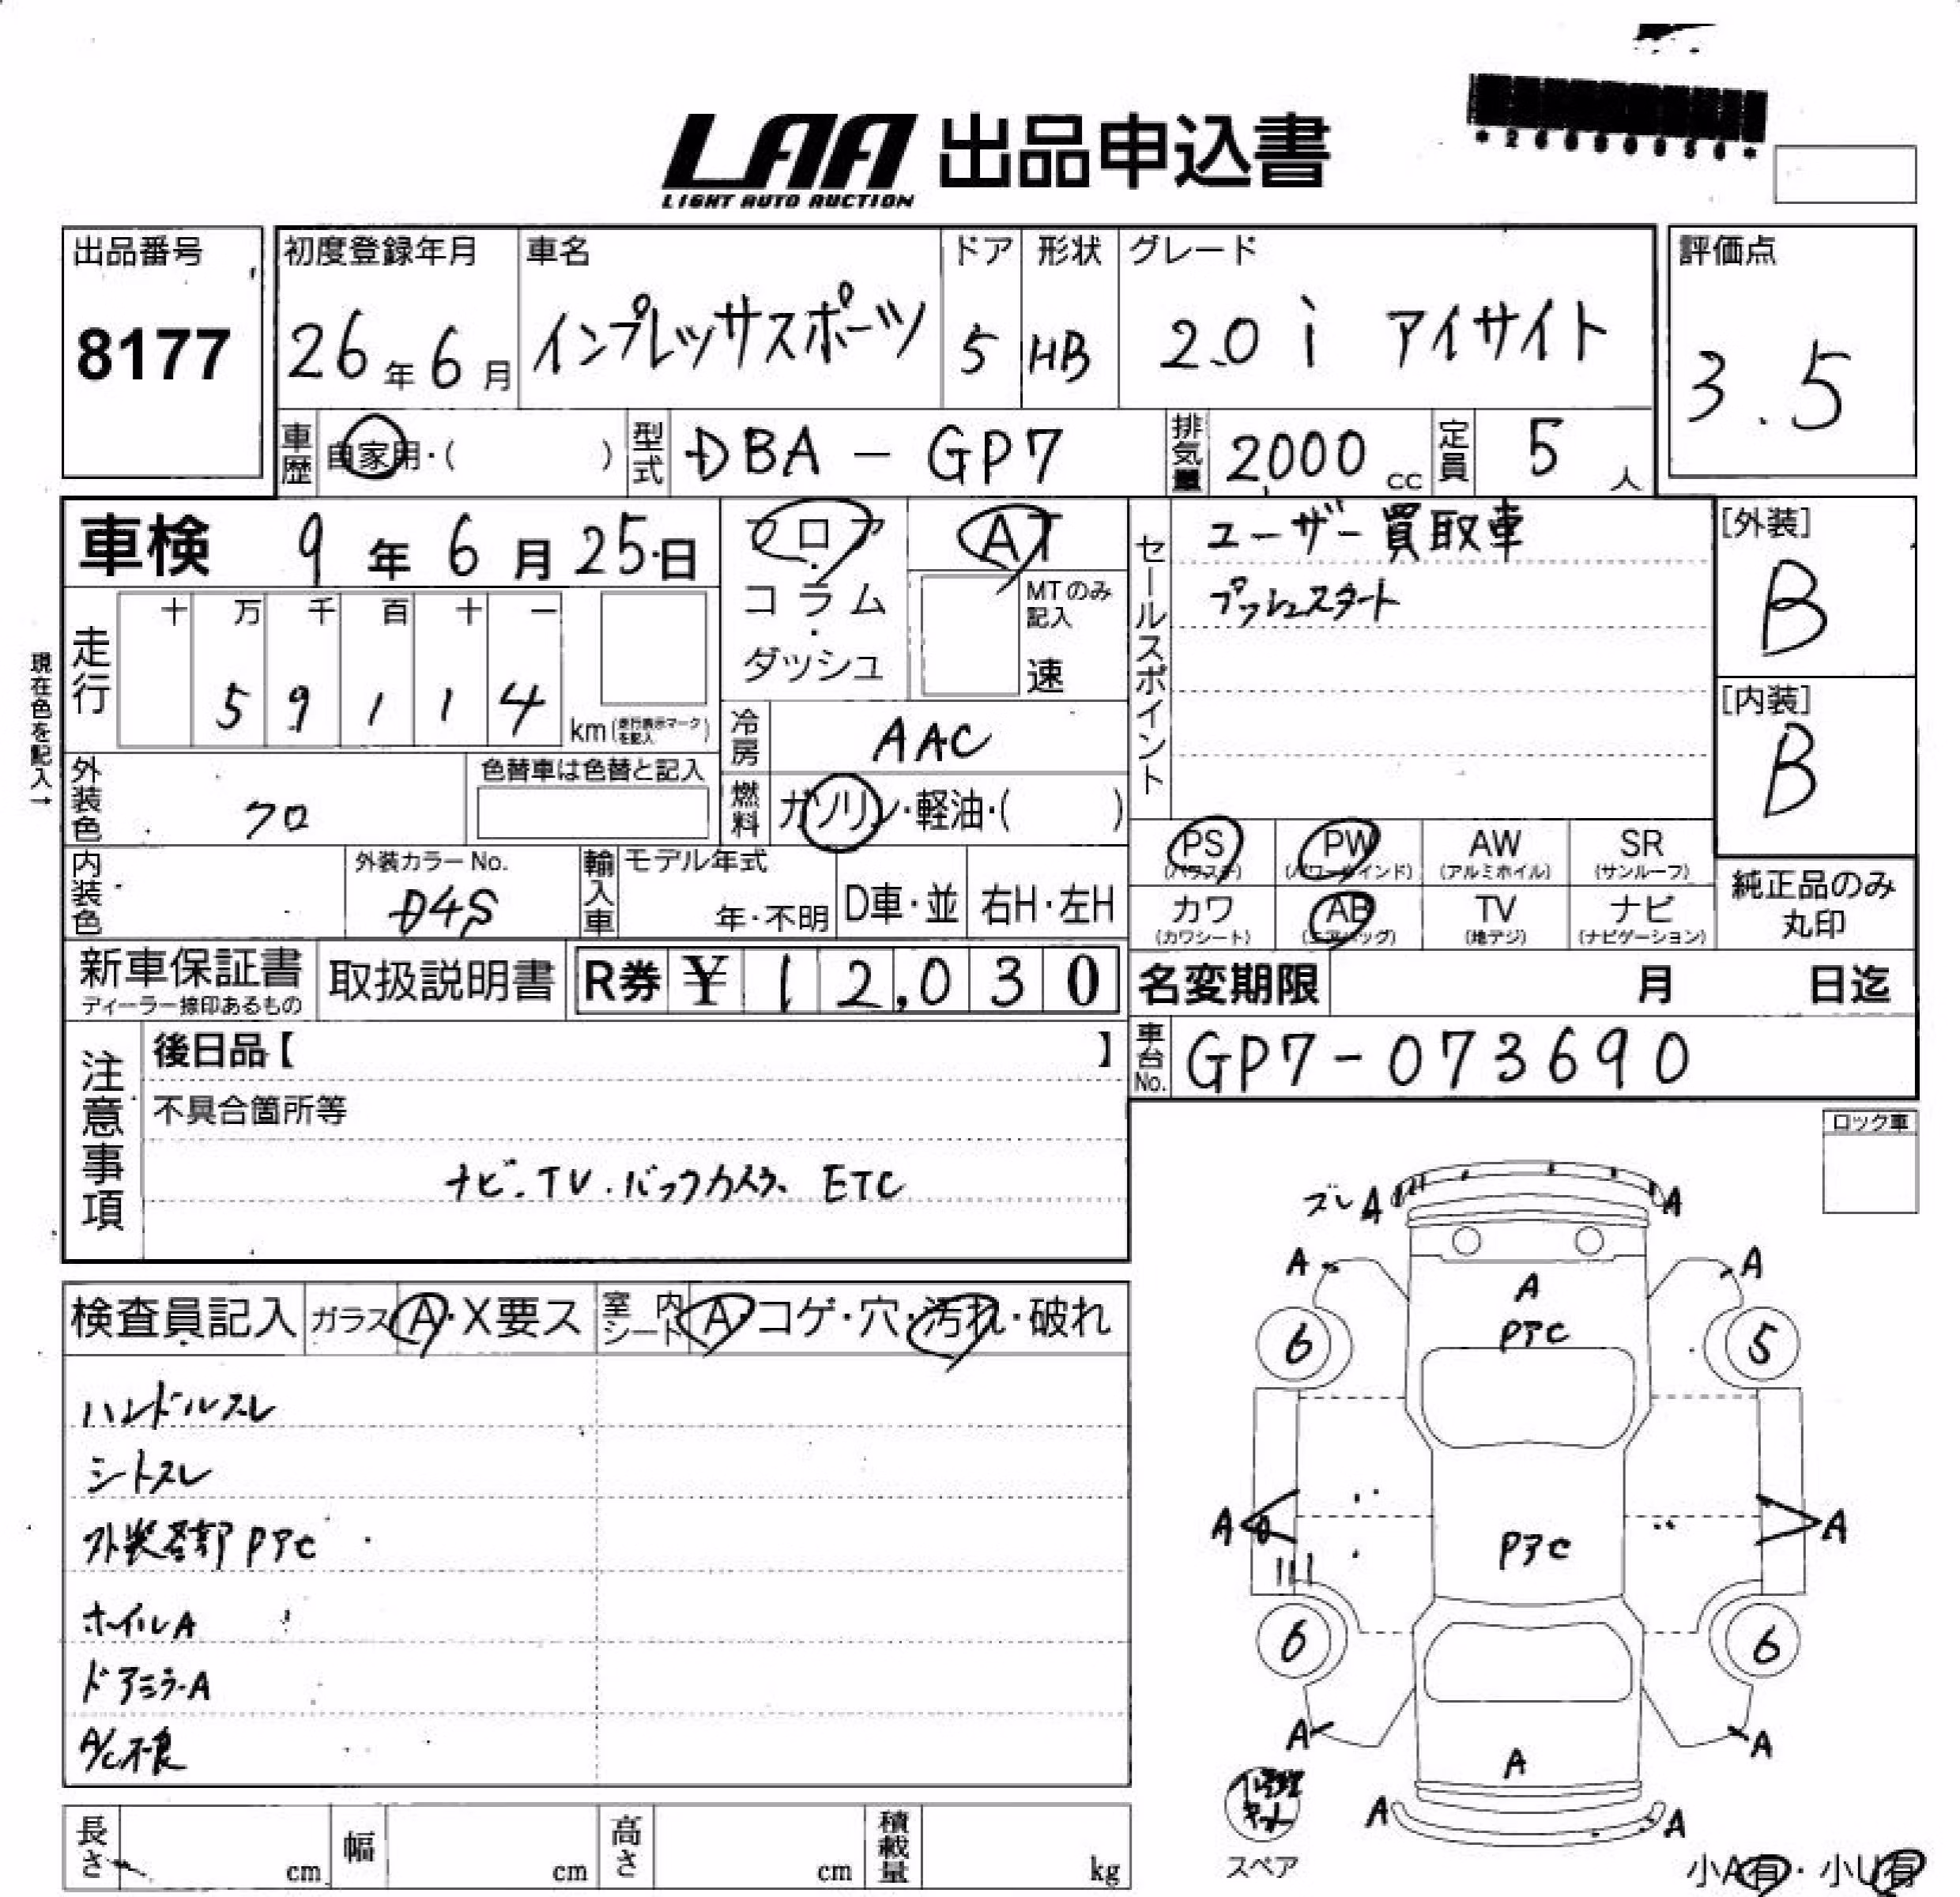 LAA 出品申込書
LIGHT AUTO AUCTION
出品番号
8177
初度登録年月
26年6月
車名
インプレッサスポーツ
ドア
5
形状
HB
グレード
2.0 i アイサイト
評価点
3.5
車歴 自家用・( )
型式 DBA - GP7
排気量 2,000 cc
定員 5 人
車検 9年6月25日
フロア・コラム・ダッシュ
AT
MTのみ記入
速
セールスポイント
ユーザー買取車
プッシュスタート
[外装]
B
[内装]
B
現在色を記入→
走行
十 万 千 百 十 一
5 9 1 1 4
km (走行表示マークを記入)
冷房 AAC
燃料 ガソリン・軽油・( )
外装色 クロ
色替車は色替と記入
内装色
外装カラーNo.
D4S
輸入車
モデル年式
年・不明
D車・並
右H・左H
PS (パワステ)
PW (パワーウインド)
AW (アルミホイル)
SR (サンルーフ)
カワ (カワシート)
AB (エアバッグ)
TV (地デジ)
ナビ (ナビゲーション)
純正品のみ丸印
新車保証書
ディーラー捺印あるもの
取扱説明書
R券 ¥ 12,030
名変期限 月 日迄
車台No. GP7-073690
注意事項
後日品【 】
不具合箇所等
ナビ.TV.バックカメラ、ETC
ロック車
検査員記入
ガラス A・X要ス
室内シート A・コゲ・穴・汚れ・破れ
ハンドルスレ
シートスレ
外装各部PアC
ホイルA
ドアミラーA
A/C不良
ズレ A A
A A
A
PアC
6 5
A A
PアC
6 6
A A
A
A A
スペア
小A有・小U有
長さ cm
幅 cm
高さ cm
積載量 kg